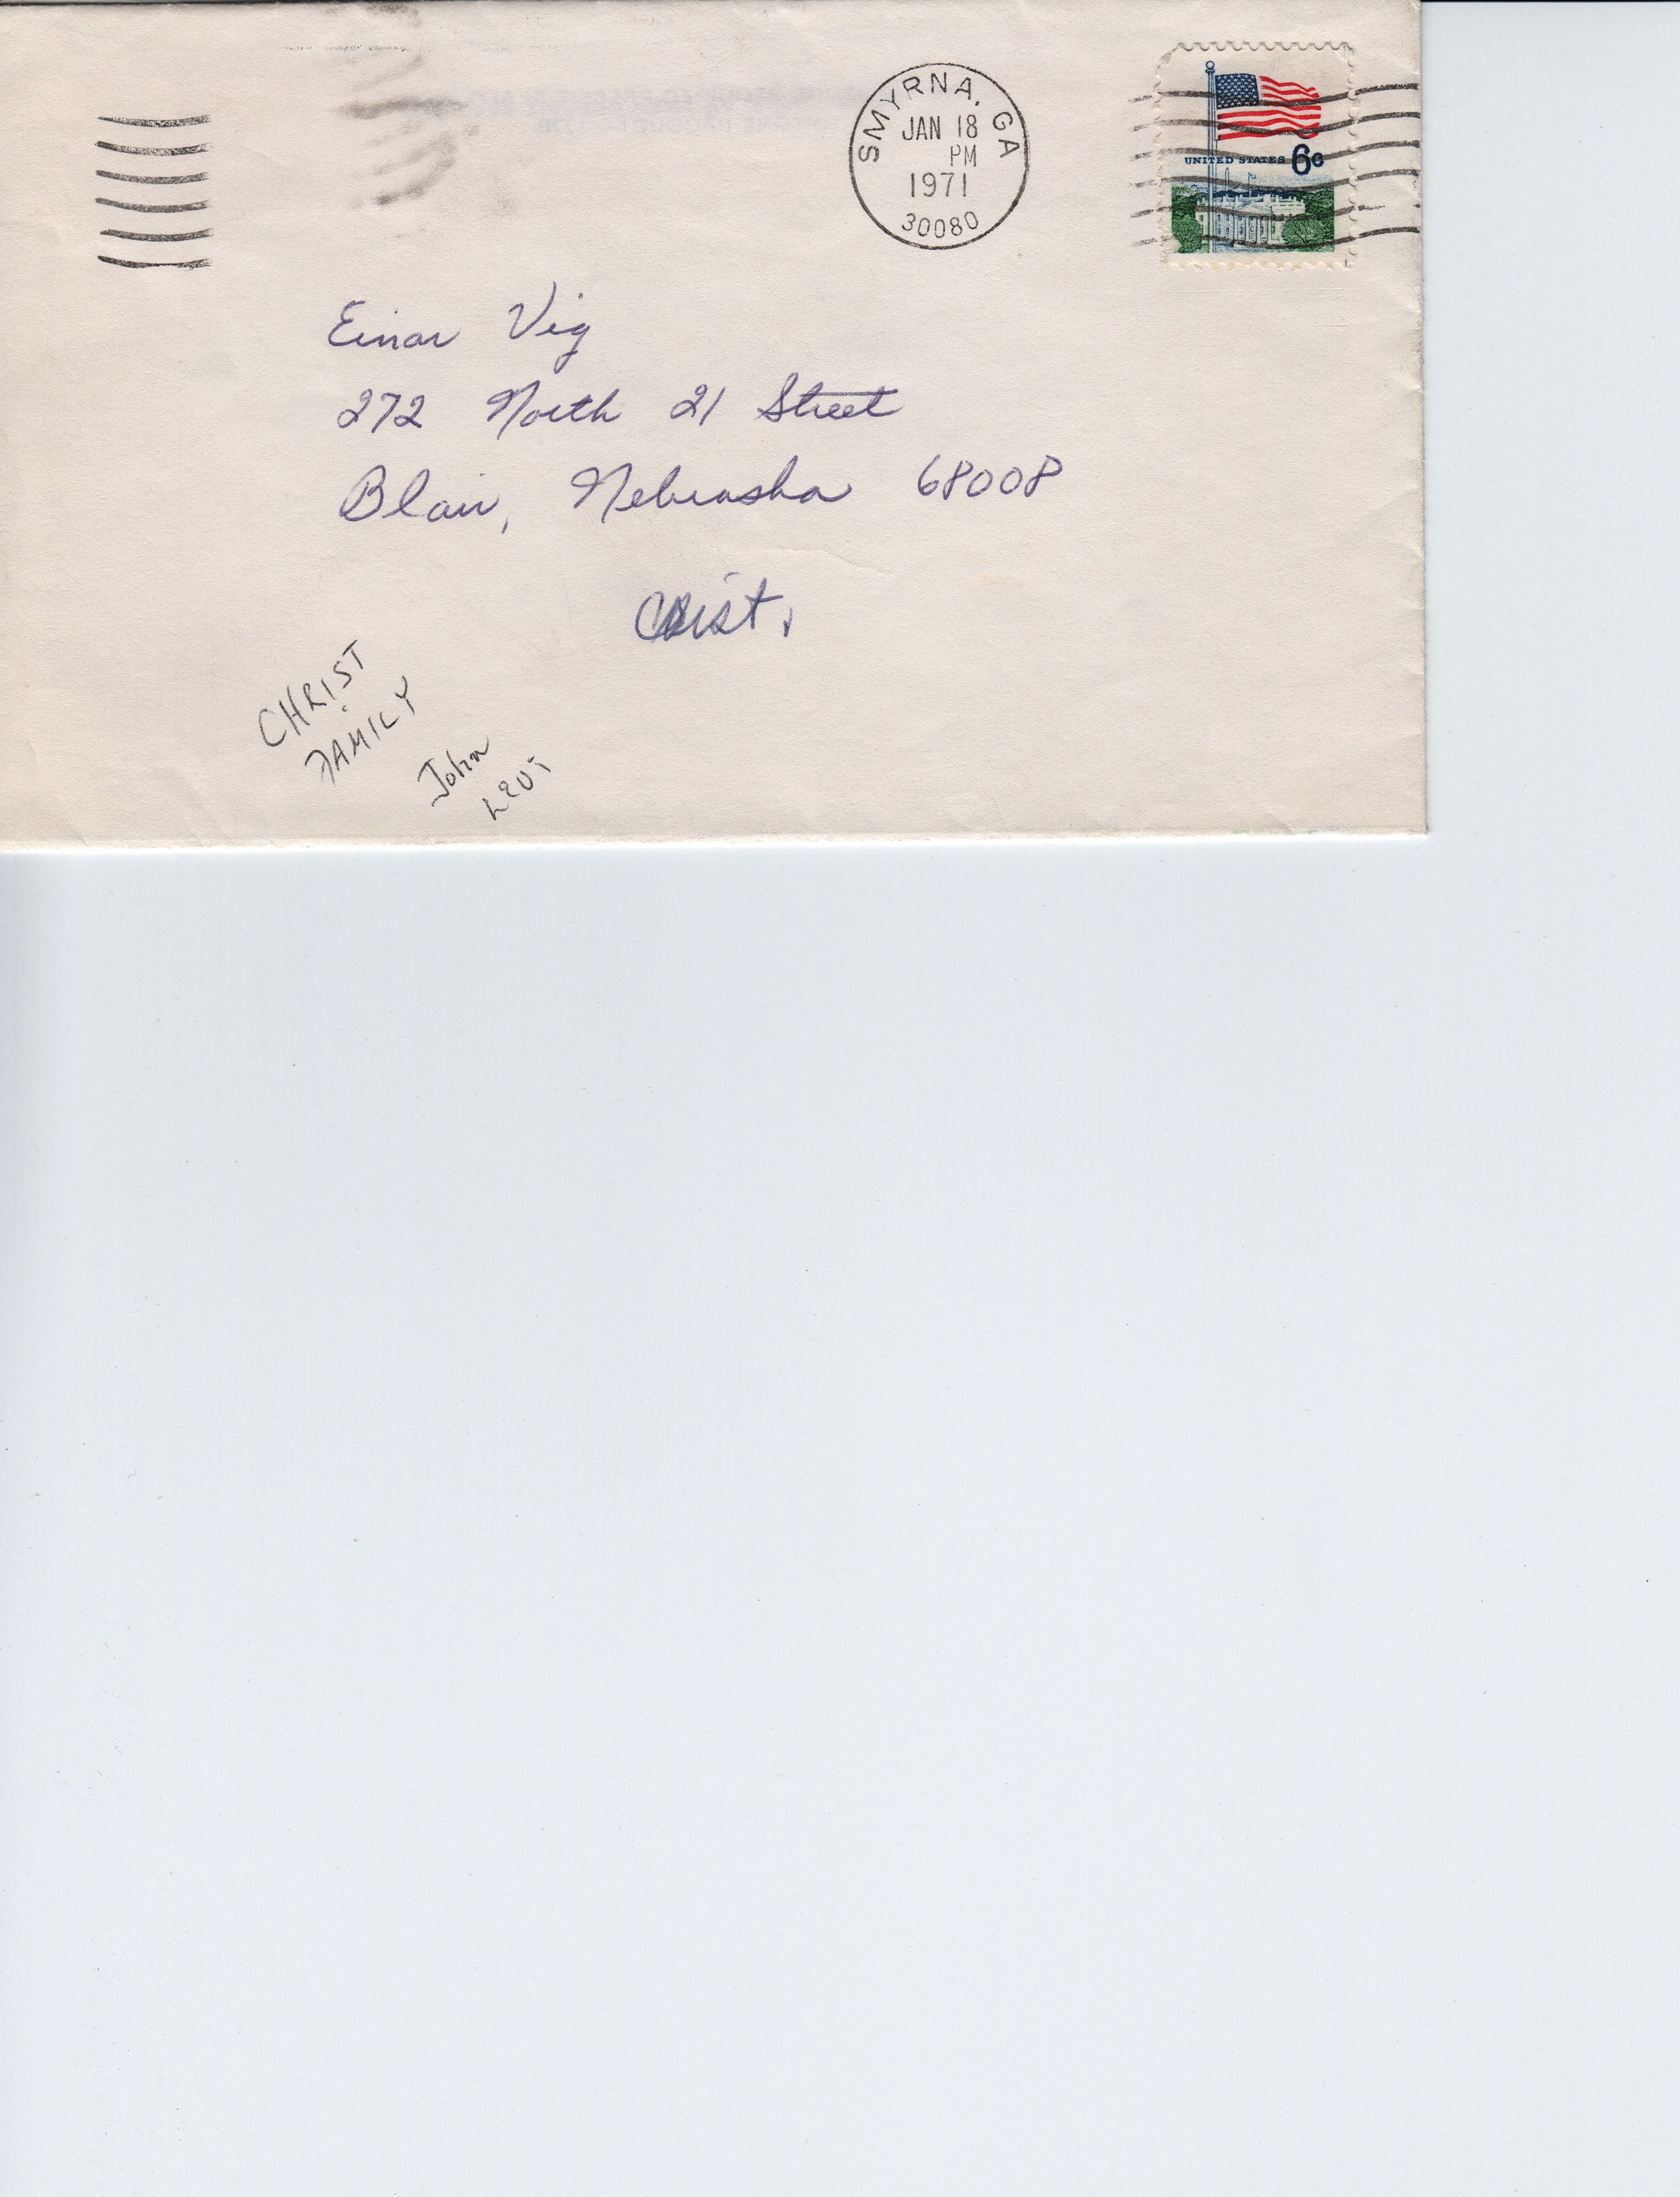 SMYRNA, GA
JAN 18
PM
1971
30080
UNITED STATES 6c
Einar Vig
272 North 21 Street
Blair, Nebraska 68008
Christ,
CHRIST
FAMILY
John
Levi